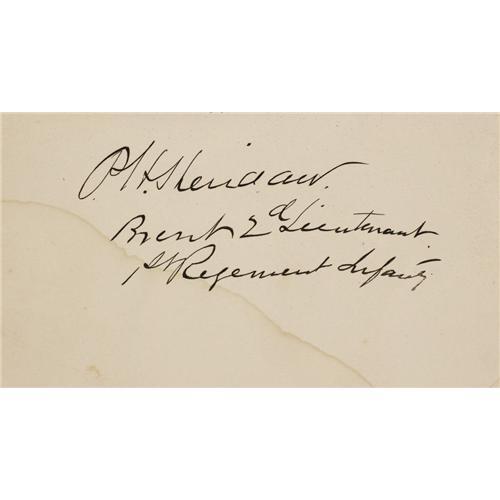 P. H. Sheridan.
Brevt 2d Lieutenant.
1st Regement Infanty